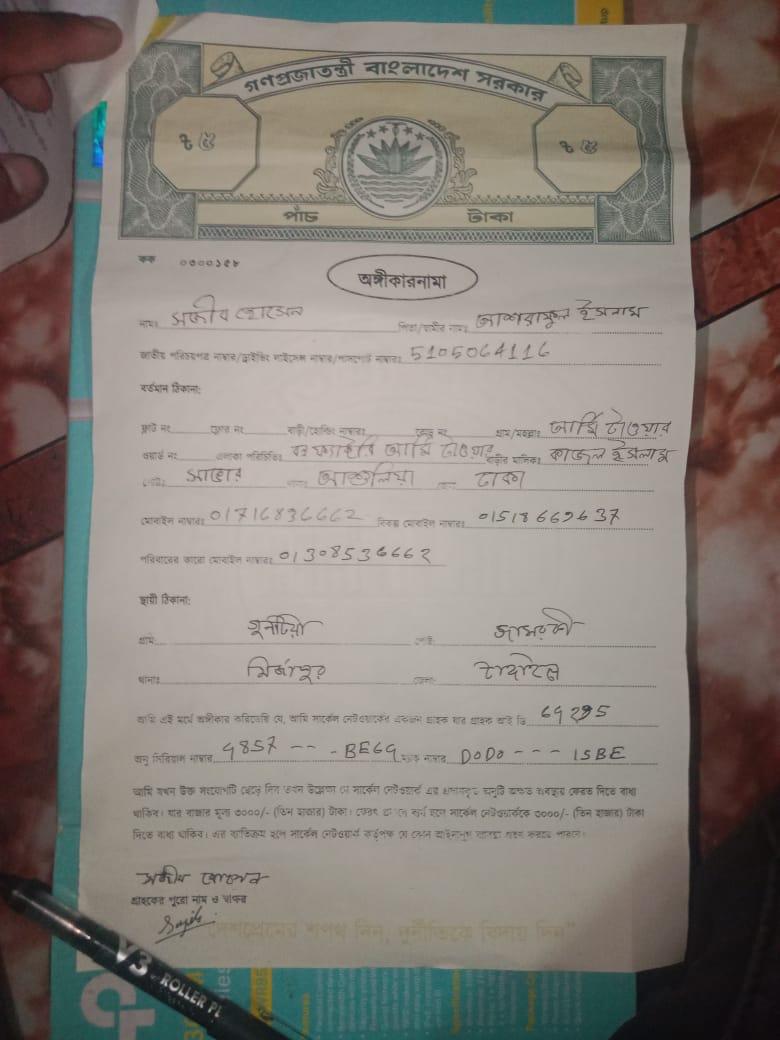 গণপ্রজাতন্ত্রী বাংলাদেশ সরকার
৳ ৫ ৳ ৫
পাঁচ টাকা
কক ০৩০০১৫৮
অঙ্গীকারনামা
নামঃ সজীব হোসেন পিতা/স্বামীর নামঃ আশরাফুল ইসলাম
জাতীয় পরিচয়পত্র নাম্বার/ড্রাইভিং লাইসেন্স নাম্বার/পাসপোর্ট নাম্বারঃ 5105064116
বর্তমান ঠিকানা:
ফ্লাট নং ফ্লোর নং বাড়ী/হোল্ডিং নাম্বারঃ রোড নং গ্রাম/মহল্লাঃ আর্মি টাওয়ার
ওয়ার্ড নং এলাকা পরিচিতিঃ আর্মি টাওয়ার বাড়ীর মালিকঃ কাজল ইসলাম
সাভার আশুলিয়া ঢাকা
মোবাইল নাম্বারঃ 01716836662 বিকল্প মোবাইল নাম্বারঃ 01518669637
পরিবারের কারো মোবাইল নাম্বারঃ 01308536662
স্থায়ী ঠিকানা:
গ্রাম: গুনটিয়া পোষ্ট: জামুরকী
থানাঃ মির্জাপুর জেলা: টাঙ্গাইল
আমি এই মর্মে অঙ্গীকার করিতেছি যে, আমি সার্কেল নেটওয়ার্কের একজন গ্রাহক যার গ্রাহক আই ডি 69295
অনু সিরিয়াল নাম্বার 4857 -- - BE69 ম্যাক নাম্বার DODO --- 15BE
আমি যখন উক্ত সংযোগটি ছেড়ে দিব তখন উল্লেখ্য যে সার্কেল নেটওয়ার্ক এর প্রদানকৃত অনুটি অক্ষত অবস্থায় ফেরত দিতে বাধ্য
থাকিব। যার বাজার মূল্য ৩০০০/- (তিন হাজার) টাকা। ফেরৎ দানে ব্যর্থ হলে সার্কেল নেটওয়ার্ককে ৩০০০/- (তিন হাজার) টাকা
দিতে বাধ্য থাকিব। এর ব্যতিক্রম হলে সার্কেল নেটওয়ার্ক কর্তৃপক্ষ যে কোন আইনানুগ ব্যবস্থা গ্রহণ করতে পারবে।
সজীব হোসেন
গ্রাহকের পুরো নাম ও স্বাক্ষর
Sajib
"দেশপ্রেমের শপথ নিন, দুর্নীতিকে বিদায় দিন"
V3 ROLLER PL